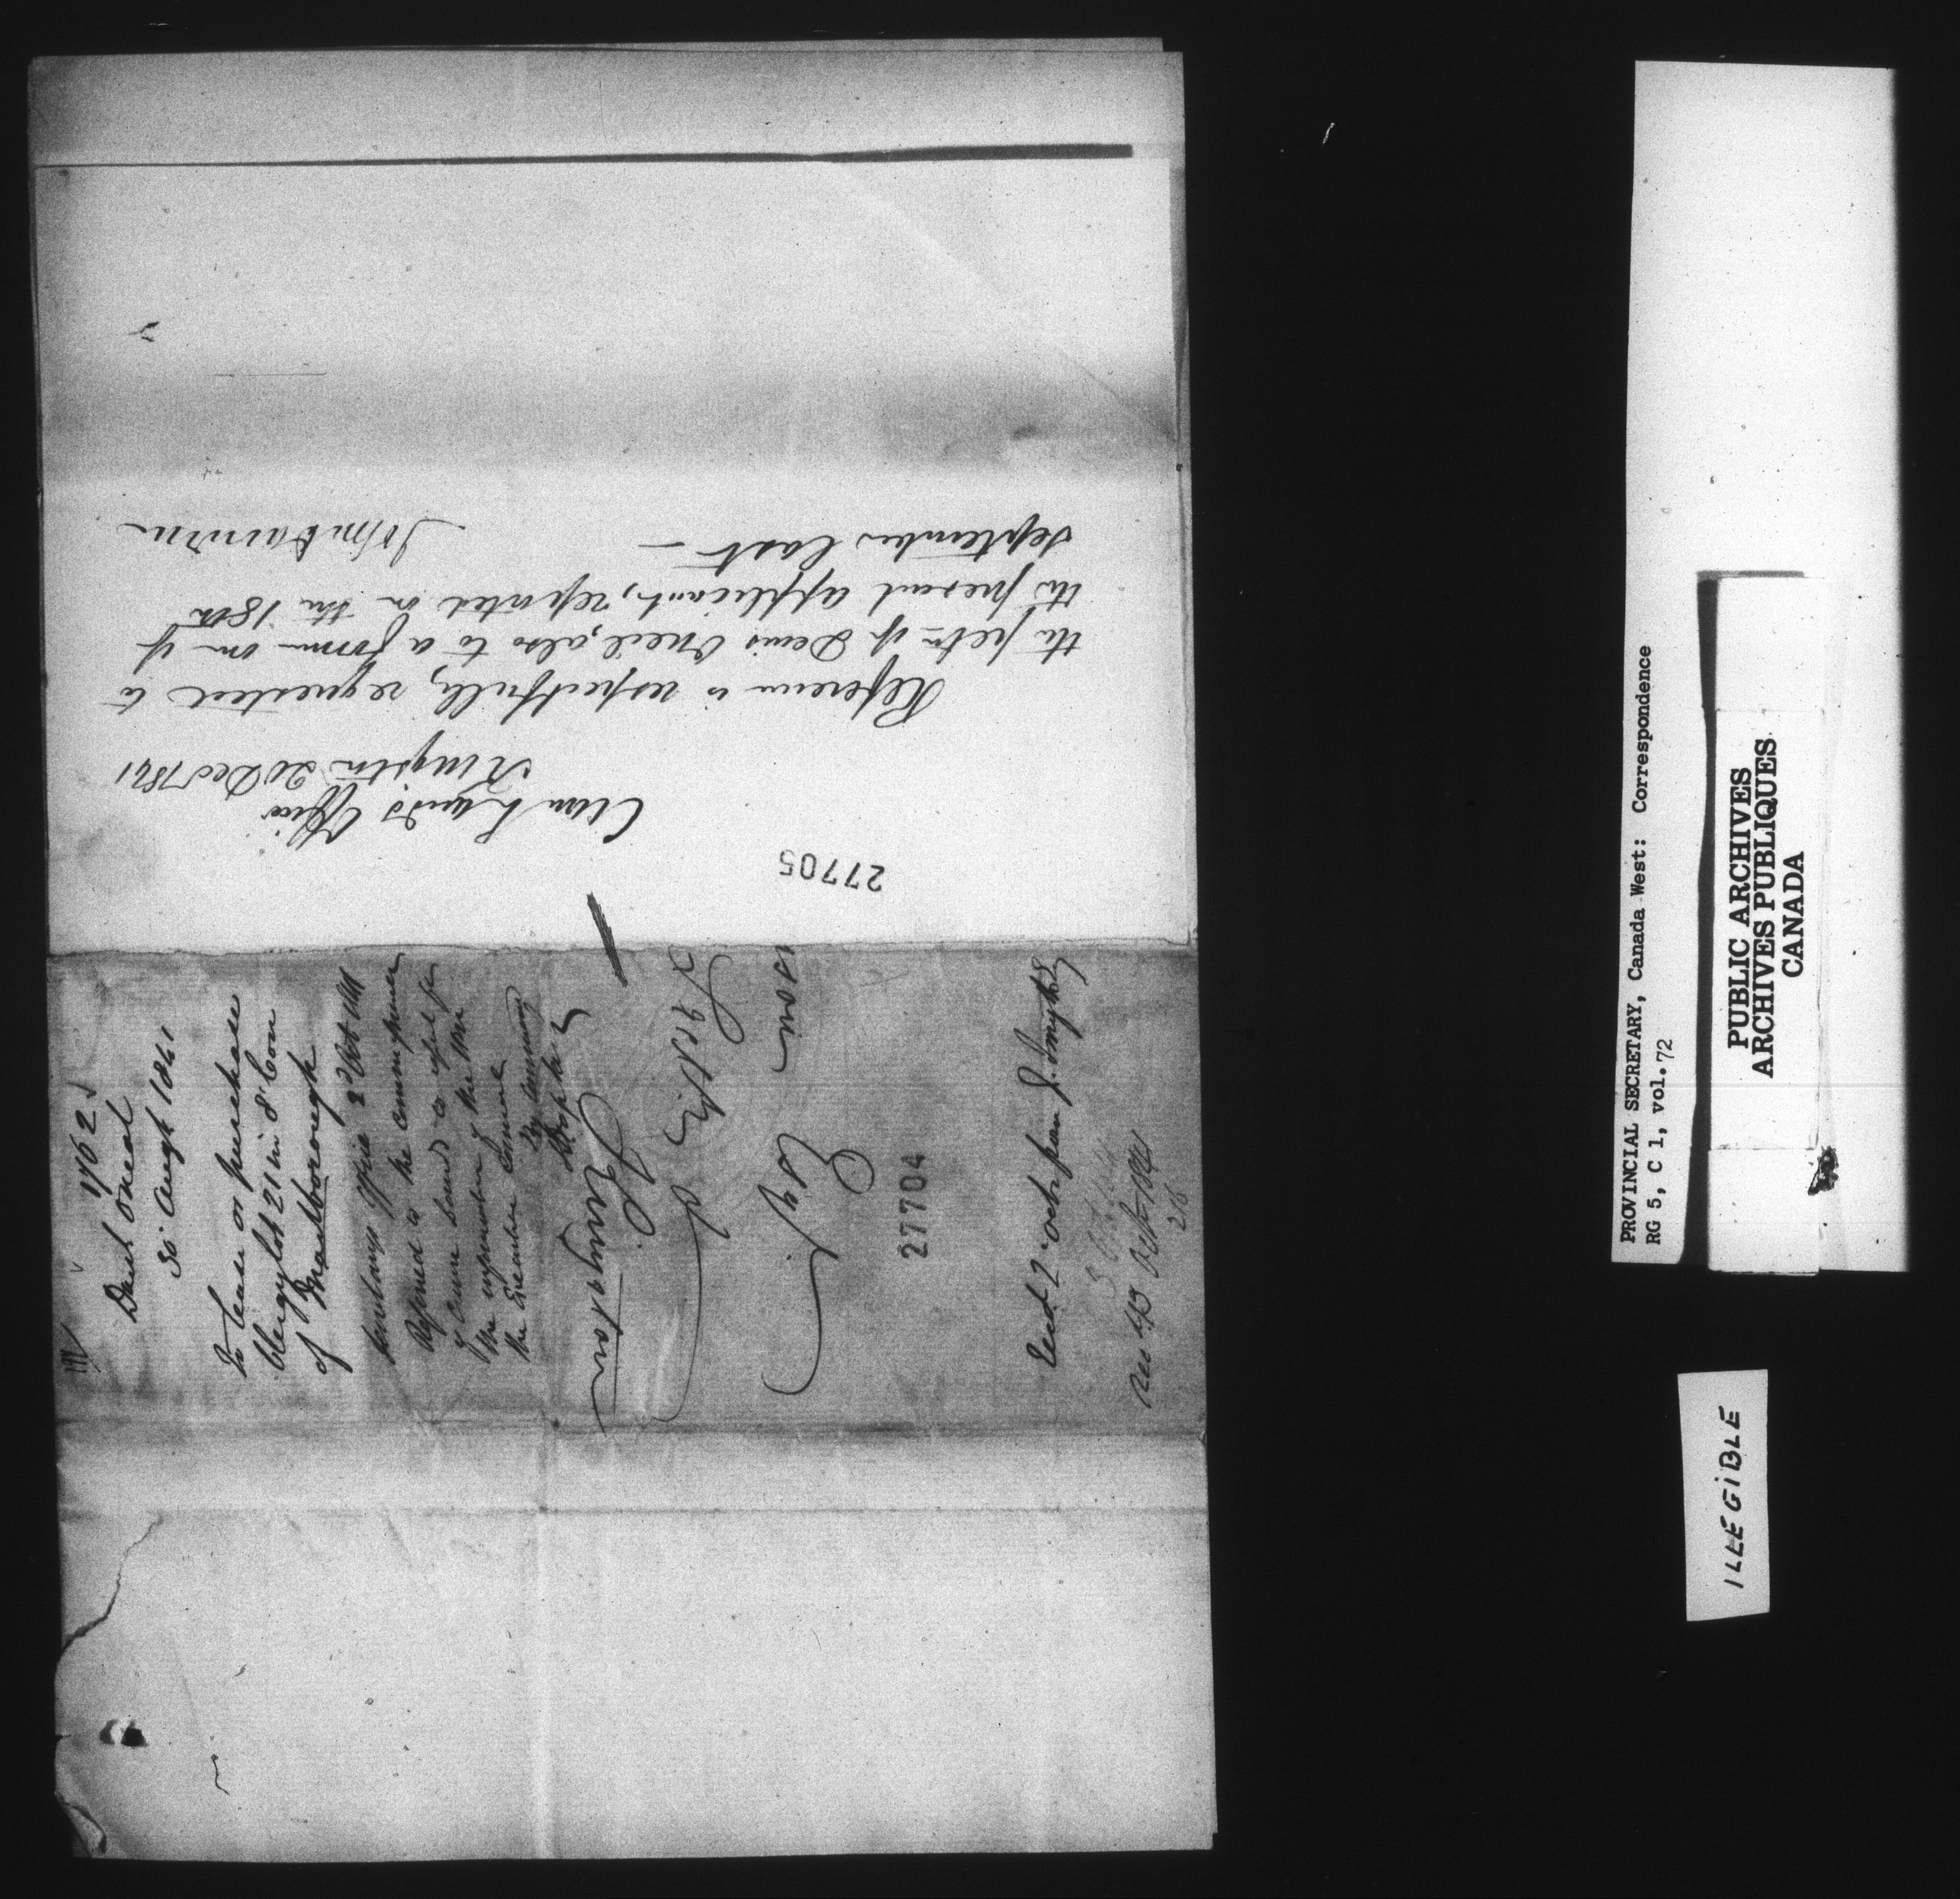 27705
Crown Lands Office
Kingston 20 Dec 1841
Reference is respectfully requested to
the petn of Denis Oneil, also to a former one of
the present applicant, reported on the 18th
September last —
1762
Danl Oneal
30 Augt 1841
To lease or purchase
Clergy lot 21 in 8 Con
of Marlborough
Secretarys Office 2d Oct 1841
Referred to the Commissioner
of Crown Lands to report for
the information of the Hon
the Executive Council
By Command
Kingston
Esqr
27704
Recd 2 Octr from J. Smyth
No 43 Oct 1841
PROVINCIAL SECRETARY, Canada West: Correspondence
RG 5, C 1, vol.72
PUBLIC ARCHIVES
ARCHIVES PUBLIQUES
CANADA
ILLEGIBLE